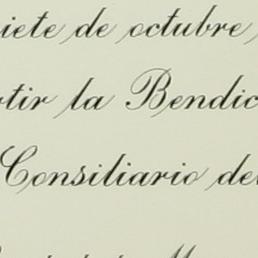 iete de octubre
rtir la Bendic
Consiliario del